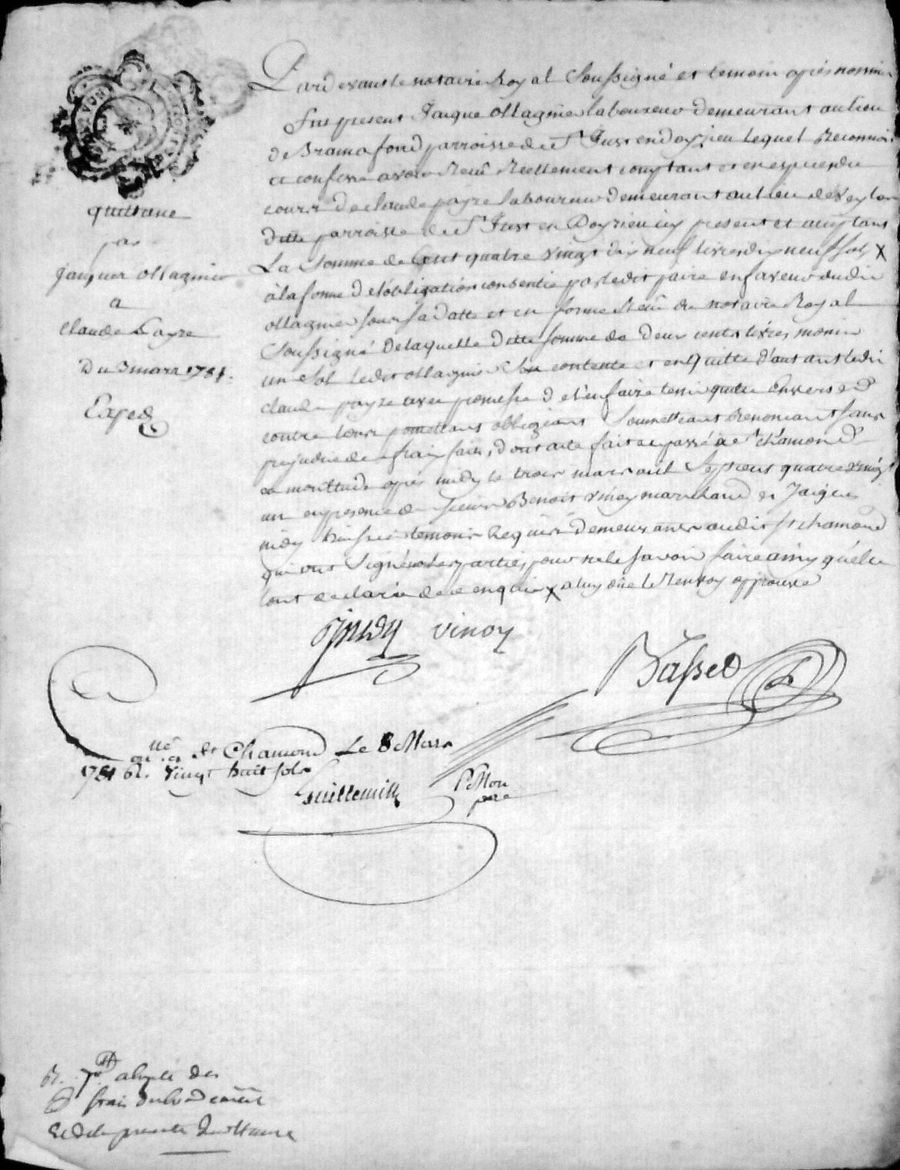 quittance
par
Jacques ollagnier
a
Claude Payre
Du 3 mars 1781.
Exped
Pardevant le notaire Royal Soussigné et temoin après nommé
Fut present Jacque ollagnier laboureur demeurant au lieu
de Bramafond parroisse de St Just en doysieu lequel Reconnoi
et confesse avoir Reçu Reellement comptant et en especes du
cours de claude payre laboureur demeurant au lieu de
ditte parroisse de St Just en Doysieu icy present et acceptant
La Somme de Cent quatre vingt dix neuf livres dix neuf sols X
à la forme de l'obligation consentie par ledit paire en faveur dudit
ollagnier sous sa datte et en forme Reçu du notaire Royal
Soussigné de laquelle ditte somme de deux cents livres moins
un sol ledit ollagnier Se contente et en quitte d'autant ledit
claude payre avec promesse de l'en faire tenir quitte Envers et
contre tous promettans obligeans Soumettant Renonceant sans
prejudice de frais faits, dont acte fait et passé a St chamond
le trois mars mil Sept cent quatre vingt
un en presence de Sieur Benoit vinoy marchand et Jacque
temoins Requis demeurans audit St chamond
qui ont Signé non les parties pour ne le savoir faire ainsy qu'elle
ont declarée de ce enquis X a luy due le Renvoy approuvé
vinoy
Basset
St Chamond Le 8 Mars
1781 R. vingt huit sols
pere
R. a luy des
frais
et de la presente quittance